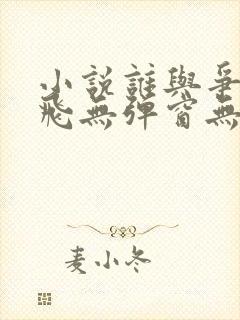 小說誰與爭
飛無彈窗無
麦小冬